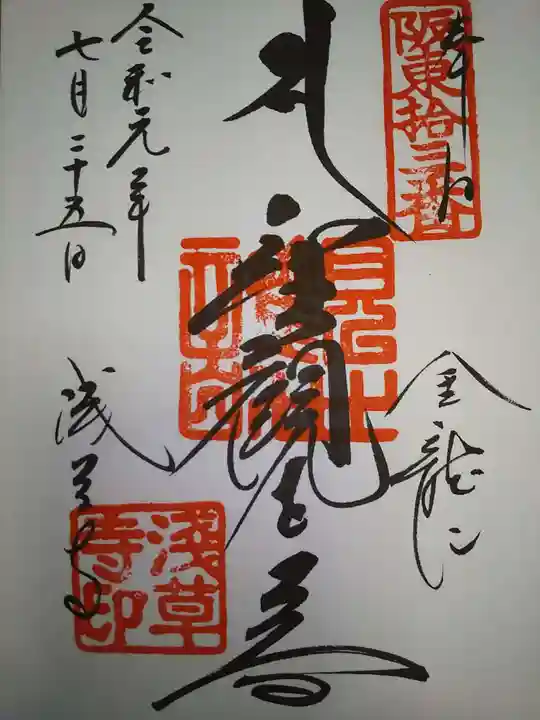 奉拝
阪東拾三番
金龍山
聖観世音
浅草寺
淺草寺印
令和元年
七月二十五日